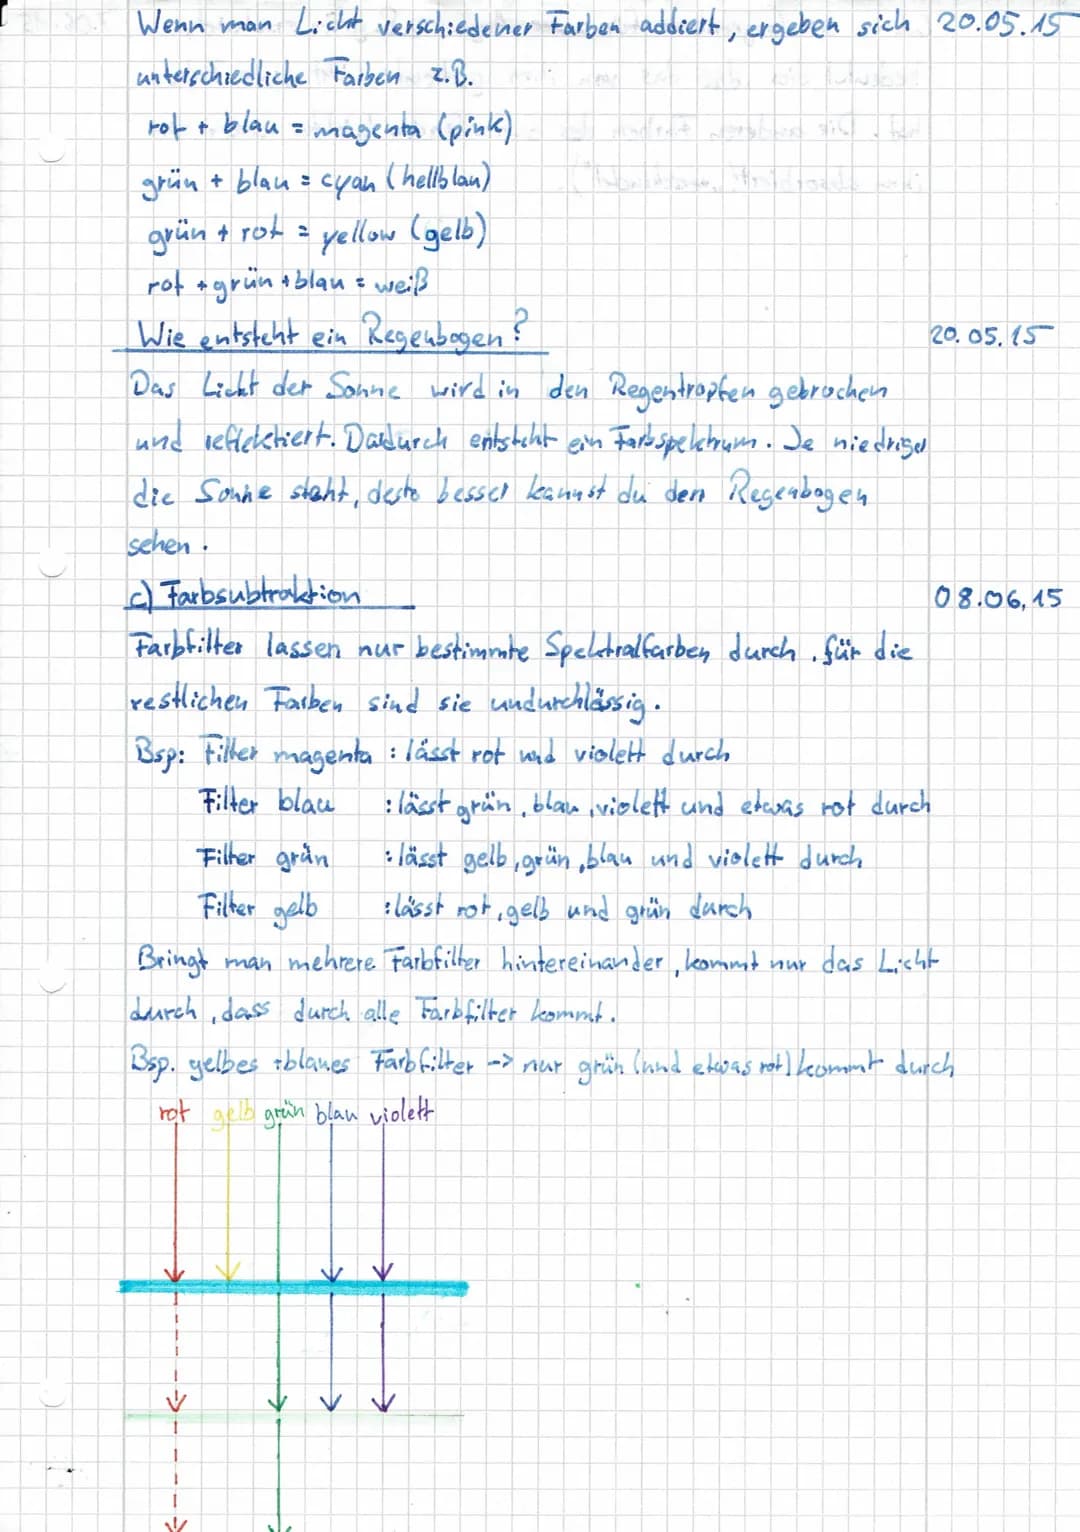 Wenn man Licht verschiedener Farben addiert, ergeben sich 20.05.15
unterschiedliche Farben z.B.
rot + blau = magenta (pink)
grün + blau = cyan (hellblau)
grün + rot = yellow (gelb)
rot + grün + blau = weiß
Wie entsteht ein Regenbogen? 20.05.15
Das Licht der Sonne wird in den Regentropfen gebrochen
und reflektiert. Dadurch entsteht ein Farbspektrum. Je niedriger
die Sonne steht, desto besser kannst du den Regenbogen
sehen.
c) Farbsubtraktion 08.06.15
Farbfilter lassen nur bestimmte Spektralfarben durch, für die
restlichen Farben sind sie undurchlässig.
Bsp: Filter magenta : lässt rot und violett durch
Filter blau : lässt grün, blau, violett und etwas rot durch
Filter grün : lässt gelb, grün, blau und violett durch
Filter gelb : lässt rot, gelb und grün durch
Bringt man mehrere Farbfilter hintereinander, kommt nur das Licht
durch, dass durch alle Farbfilter kommt.
Bsp. gelbes + blaues Farbfilter -> nur grün (und etwas rot) kommt durch
rot gelb grün blau violett